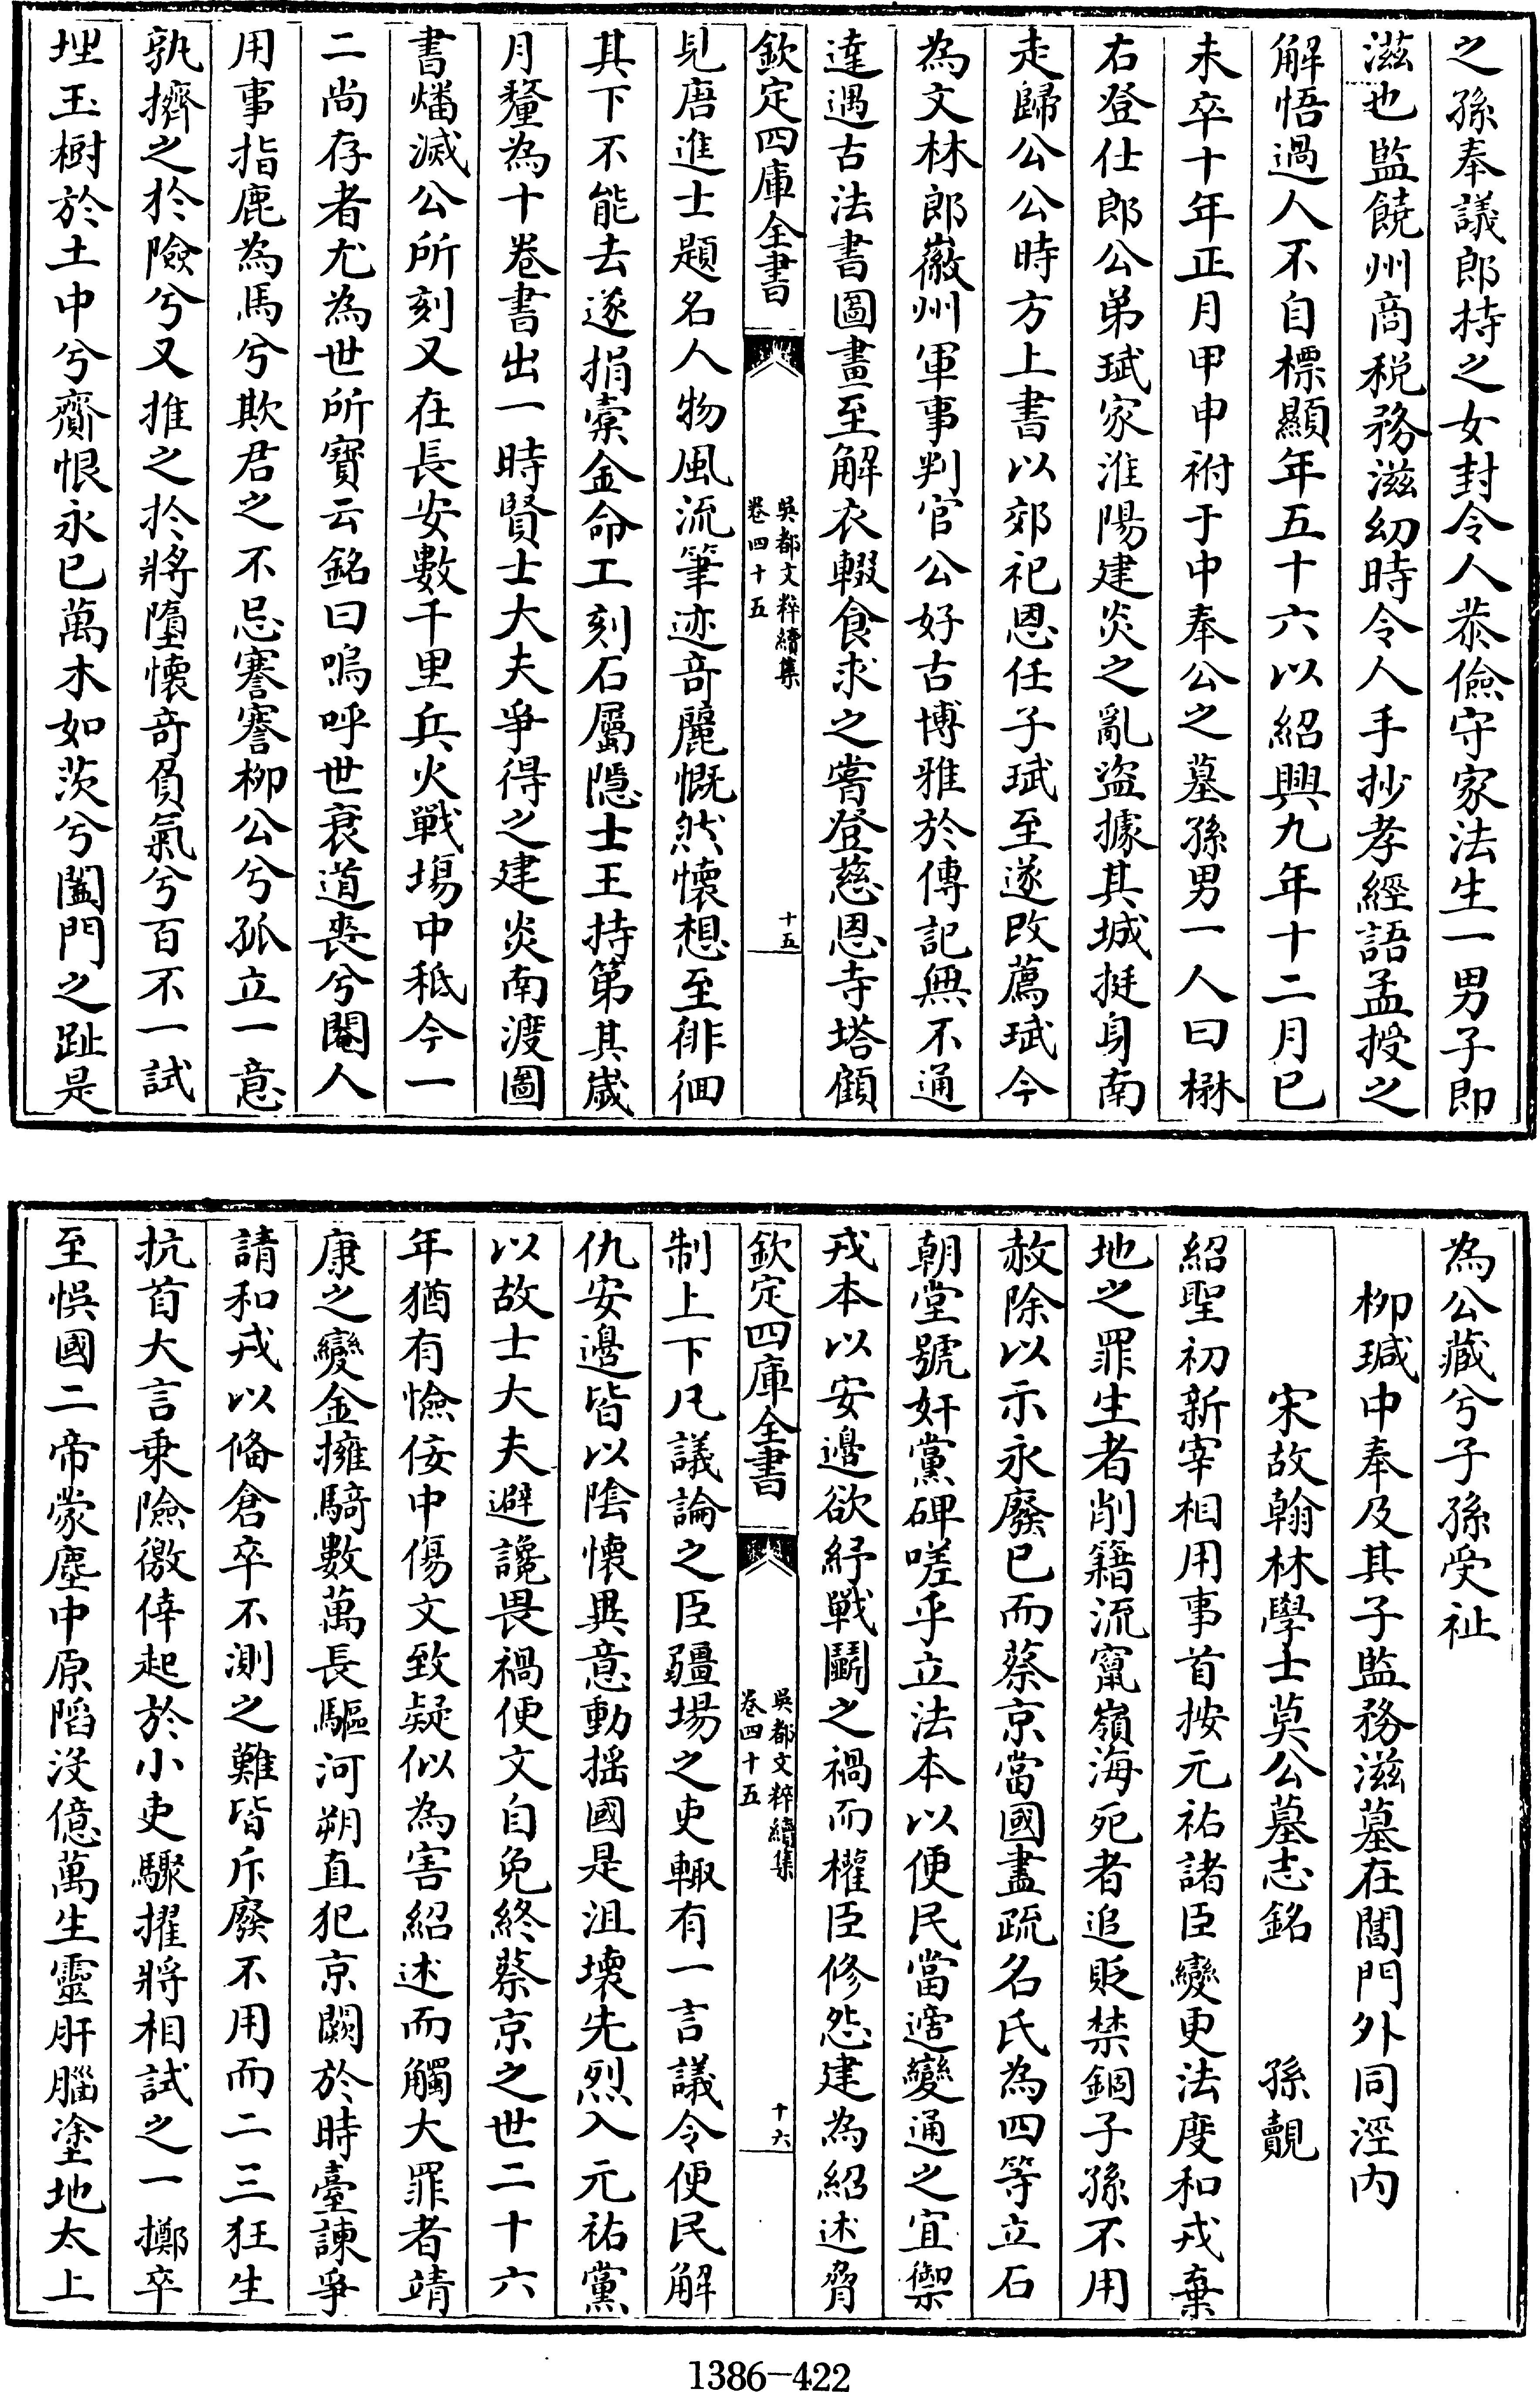 之孫奉議郎持之女封令人恭儉守家法生一男子即
滋也監饒州商税務滋幼時令人手抄孝經語孟授之
解悟過人不自標顯年五十六以紹興九年十二月已
未卒十年正月甲申祔于中奉公之墓孫男一人曰楙
右登仕郎公弟珷家淮陽建炎之亂盗據其城挺身南
走歸公公時方上書以郊祀恩任子珷至遂改薦珷今
為文林郎徽州軍事判官公好古博雅於傳記無不通
達遇古法書圖畫至解衣輟食求之嘗登慈恩寺塔顧
欽定四庫全書
吳都文粹續集
卷四十五
十五
見唐進士題名人物風流筆迹竒麗慨然懷想至徘徊
其下不能去遂捐槖金命工刻石屬隱士王持第其嵗
月釐為十卷書出一時賢士大夫爭得之建炎南渡圖
書燔滅公所刻又在長安數千里兵火戰塲中秪今一
二尚存者尤為世所寳云銘曰嗚呼世衰道喪兮閹人
用事指鹿為馬兮欺君之不忌謇謇柳公兮孤立一意
孰擠之於險兮又推之於將墮懷竒負氣兮百不一試
埋玉樹於土中兮齎恨永已萬木如茨兮闔門之趾是
為公藏兮子孫受祉
柳瑊中奉及其子監務滋墓在閶門外同涇内
宋故翰林學士莫公墓志銘
孫覿
紹聖初新宰相用事首按元祐諸臣變更法度和戎棄
地之罪生者削籍流竄嶺海死者追貶禁錮子孫不用
赦除以示永廢已而蔡京當國盡疏名氏為四等立石
朝堂號奸黨碑嗟乎立法本以便民當適變通之宜禦
戎本以安邊欲紓戰鬭之禍而權臣修怨建為紹述脅
欽定四庫全書
吳都文粹續集
卷四十五
十六
制上下凡議論之臣疆場之吏輙有一言議令便民解
仇安邊皆以隂懷異意動揺國是沮壊先烈入元祐黨
以故士大夫避讒畏禍便文自免終蔡京之世二十六
年猶有憸佞中傷文致疑似為害紹述而觸大罪者靖
康之變金擁騎數萬長驅河朔直犯京闕於時臺諫爭
請和戎以偹倉卒不測之難皆斥廢不用而二三狂生
抗首大言乗險徼倖起於小吏驟擢將相試之一擲卒
至悞國二帝蒙塵中原䧟沒億萬生靈肝腦塗地太上
1386-422